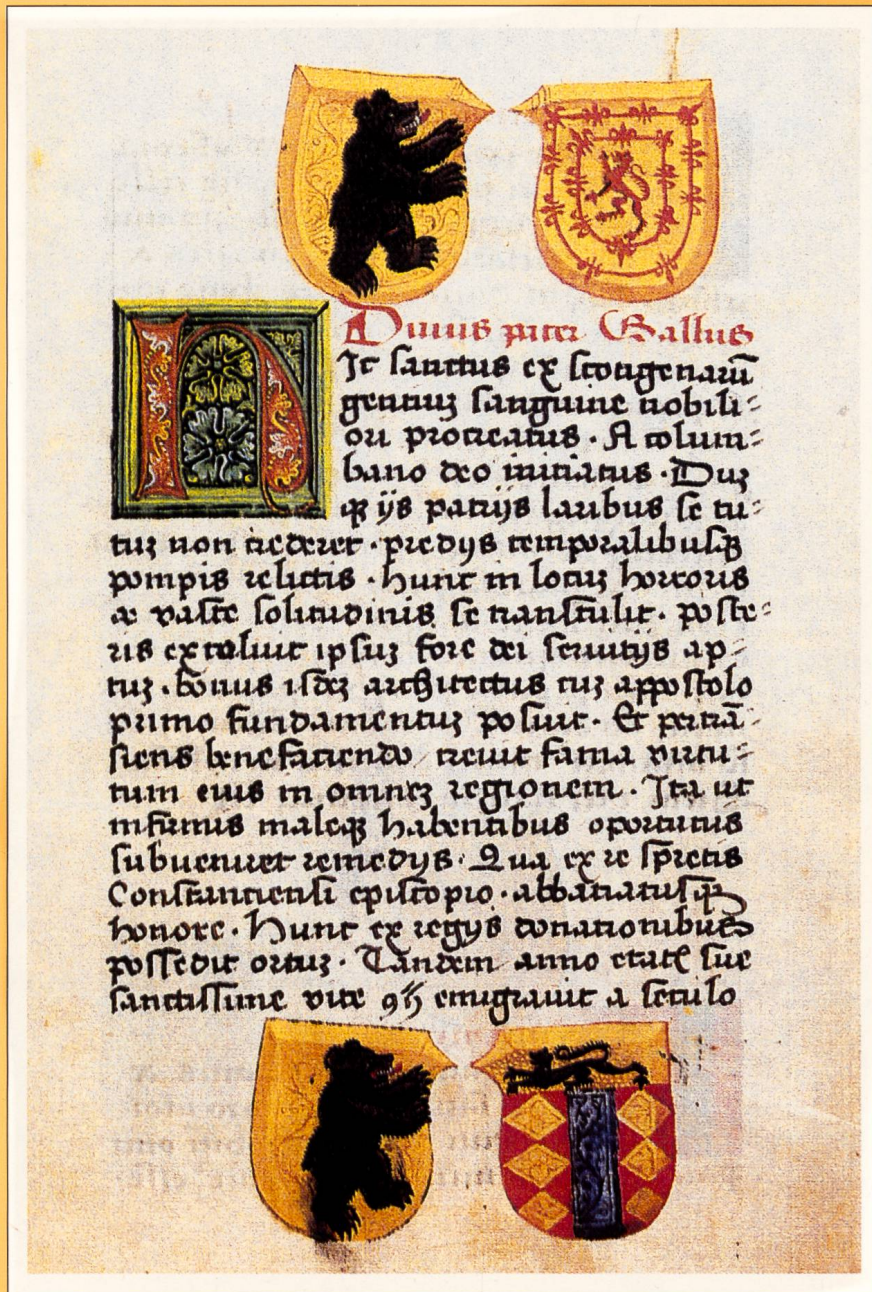 Diuus pater Gallus
Hic sanctus ex scotigenarū
gentiuꝫ sanguine nobili⸗
ori procreatus · A colum⸗
bano deo initiatus · Duꝫ
qꝫ ijs patrijs laribus se tu⸗
tuꝫ non crederet · predijs temporalibusqꝫ
pompis relictis · hunc in locuꝫ horroris
ac vaste solitudinis se transtulit · poste⸗
ris excoluit ipsuꝫ fore dei seruitijs ap⸗
tuꝫ · bonus isdeꝫ architectus cuꝫ appostolo
primo fundamentuꝫ posuit · Et pertrā⸗
siens benefaciendo creuit fama virtu⸗
tum eius in omneꝫ regionem · Ita ut
infirmis maleqꝫ habentibus oportunis
subueniret remedijs · Qua ex re spretis
Constanciensi episcopio · abbatiatusqꝫ
honore · Hunc ex regijs donationibus
possedit ortuꝫ · Tandem anno etatꝭ sue
sanctissime vite emigrauit a seculo